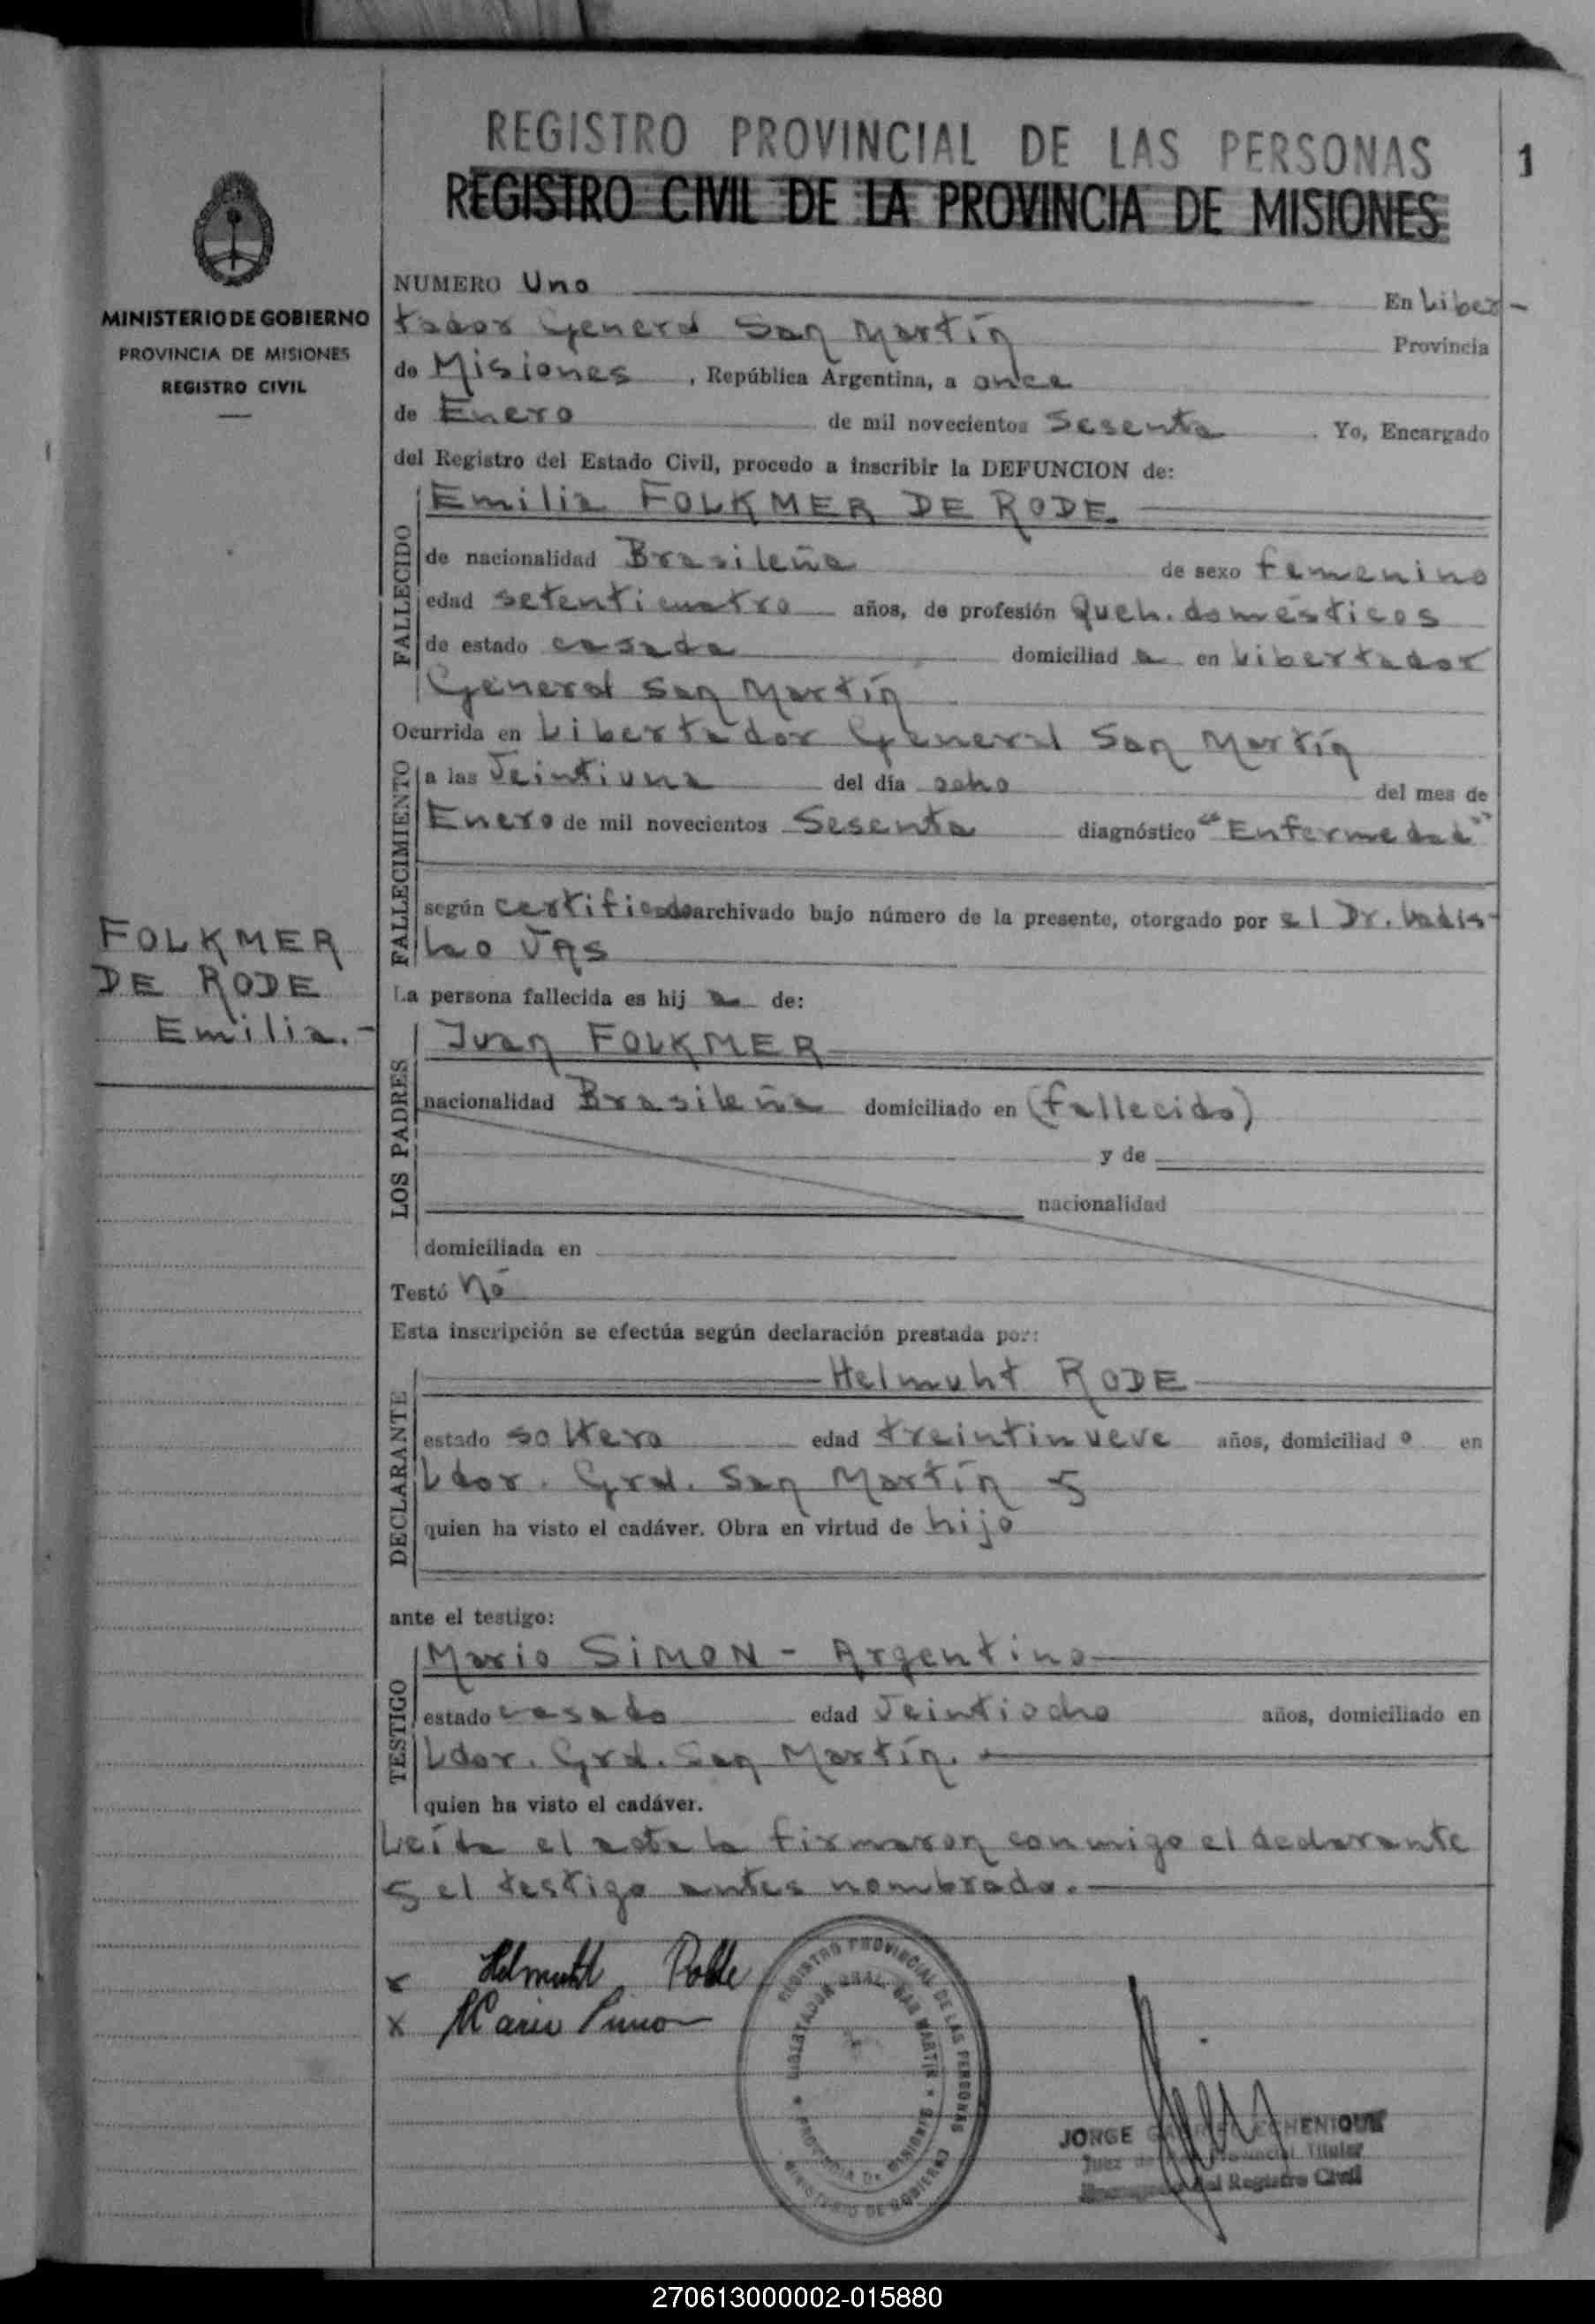 REGISTRO PROVINCIAL DE LAS PERSONAS
1
REGISTRO CIVIL DE LA PROVINCIA DE MISIONES
MINISTERIO DE GOBIERNO
PROVINCIA DE MISIONES
REGISTRO CIVIL
NUMERO Uno En Liber-
tador General San Martín Provincia
de Misiones, República Argentina, a once
de Enero de mil novecientos Sesenta. Yo, Encargado
del Registro del Estado Civil, procedo a inscribir la DEFUNCION de:
Emilia FOLKMER DE RODE
FALLECIDO
de nacionalidad Brasileña de sexo femenino
edad setenticuatro años, de profesión Queh. domésticos
de estado casada domiciliad a en Libertador
General San Martín
Ocurrida en Libertador General San Martín
FALLECIMIENTO
a las Veintiuna del día ocho del mes de
Enero de mil novecientos Sesenta diagnóstico "Enfermedad"
según certificado archivado bajo número de la presente, otorgado por el Dr. Ladis-
lao VAS
FOLKMER
DE RODE
Emilia.-
La persona fallecida es hij a de:
LOS PADRES
Juan FOLKMER
nacionalidad Brasileña domiciliado en (fallecido)
y de
nacionalidad
domiciliada en
Testó Nó
Esta inscripción se efectúa según declaración prestada por:
DECLARANTE
Helmuht RODE
estado soltero edad treintinueve años, domiciliad o en
Ldor. Gral. San Martín y
quien ha visto el cadáver. Obra en virtud de hijo
ante el testigo:
TESTIGO
Mario SIMON - Argentino
estado casado edad Veintiocho años, domiciliado en
Ldor. Gral. San Martín.
quien ha visto el cadáver.
Leída el acta la firmaron conmigo el declarante
y el testigo antes nombrado.
x Helmuht Rode
x Mario Simon
REGISTRO PROVINCIAL DE LAS PERSONAS
LIBERTADOR GRAL. SAN MARTIN
PROVINCIA DE MISIONES
MINISTERIO DE GOBIERNO
JORGE ECHENIQUE
Juez de Provincial Titular
Encargado del Registro Civil
270613000002-015880